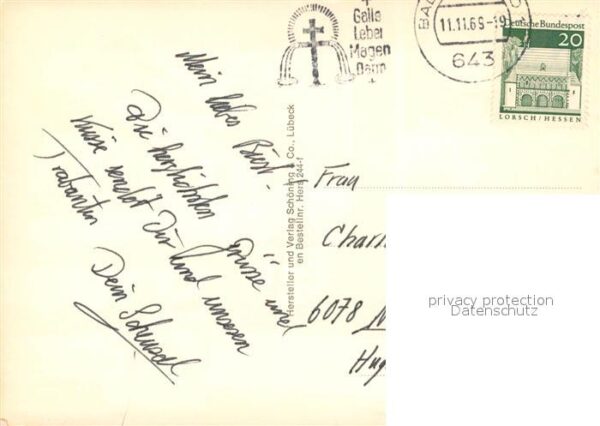 Mein liebes Biest.
Die herzlichsten Grüsse und
Küsse sendet Dir und unseren
Trabanten
Dein Scheusal
Hersteller und Verlag Schöning & Co., Lübeck
en Bestellnr. Hers 244-f
Galle
Leber
Magen
Darm
BAD
11.11.69-19
643
Deutsche Bundespost
20
LORSCH/HESSEN
Frau
Charl
6078
Hug
privacy protection
Datenschutz